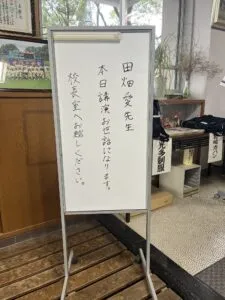 田畑愛先生
本日講演お世話になります。
校長室へお越しください。